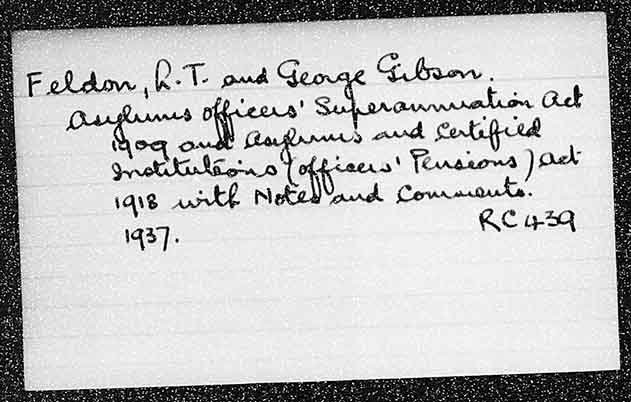 Feldon, R.T. and George Gibson.
Asylums Officers' Superannuation Act
1909 and Asylums and Certified
Institutions (Officers' Pensions) Act
1918 with Notes and Comments.
1937. RC 439